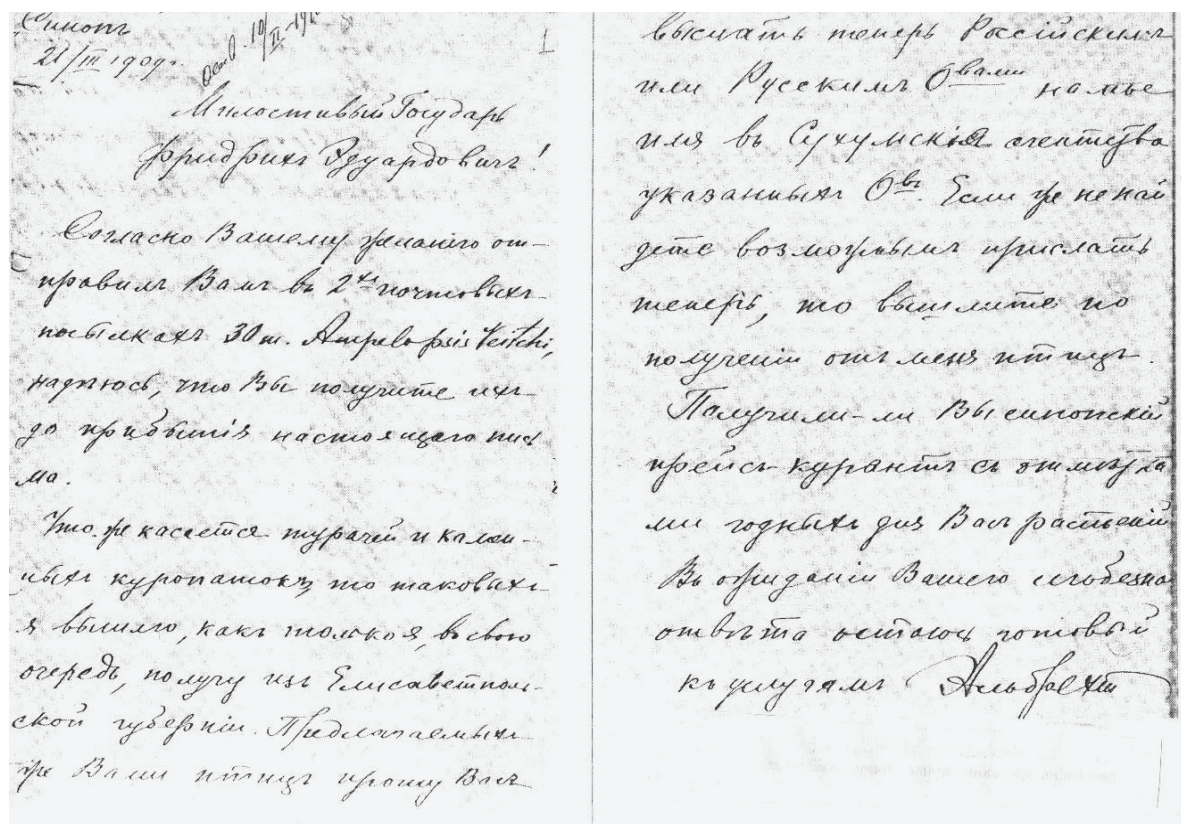 Синопъ
21/III 1909 г.
10/II-19
Милостивый Государь
Фридрихъ Эдуардовичъ!
Согласно Вашему желанію от-
правилъ Вамъ въ 2хъ почтовыхъ
посылкахъ 30 ш. Ampelopsis Veitchi,
надѣюсь, что Вы получите ихъ
до прибытія настоящаго пись
ма.
Что же касается турачей и камен-
ныхъ куропатокъ, то таковыхъ
я вышлю, какъ только я, въ свою
очередь, получу изъ Елисаветполь-
ской губерніи. Предлагаемыхъ
же Вами птицъ прошу Васъ
выслать теперь Россійскимъ
или Русскимъ О-вами на мое
имя въ Сухумскія агентства
указанныхъ О-въ. Если же не най
дете возможнымъ прислать
теперь, то вышлите по
полученіи отъ меня птицъ.
Получили-ли Вы синопскій
прейсъ-курантъ съ отмѣтка
ми годныхъ для Васъ растеній
Въ ожиданіи Вашего любезна
отвѣта остаюсь готовый
къ услугамъ Альбрехтъ